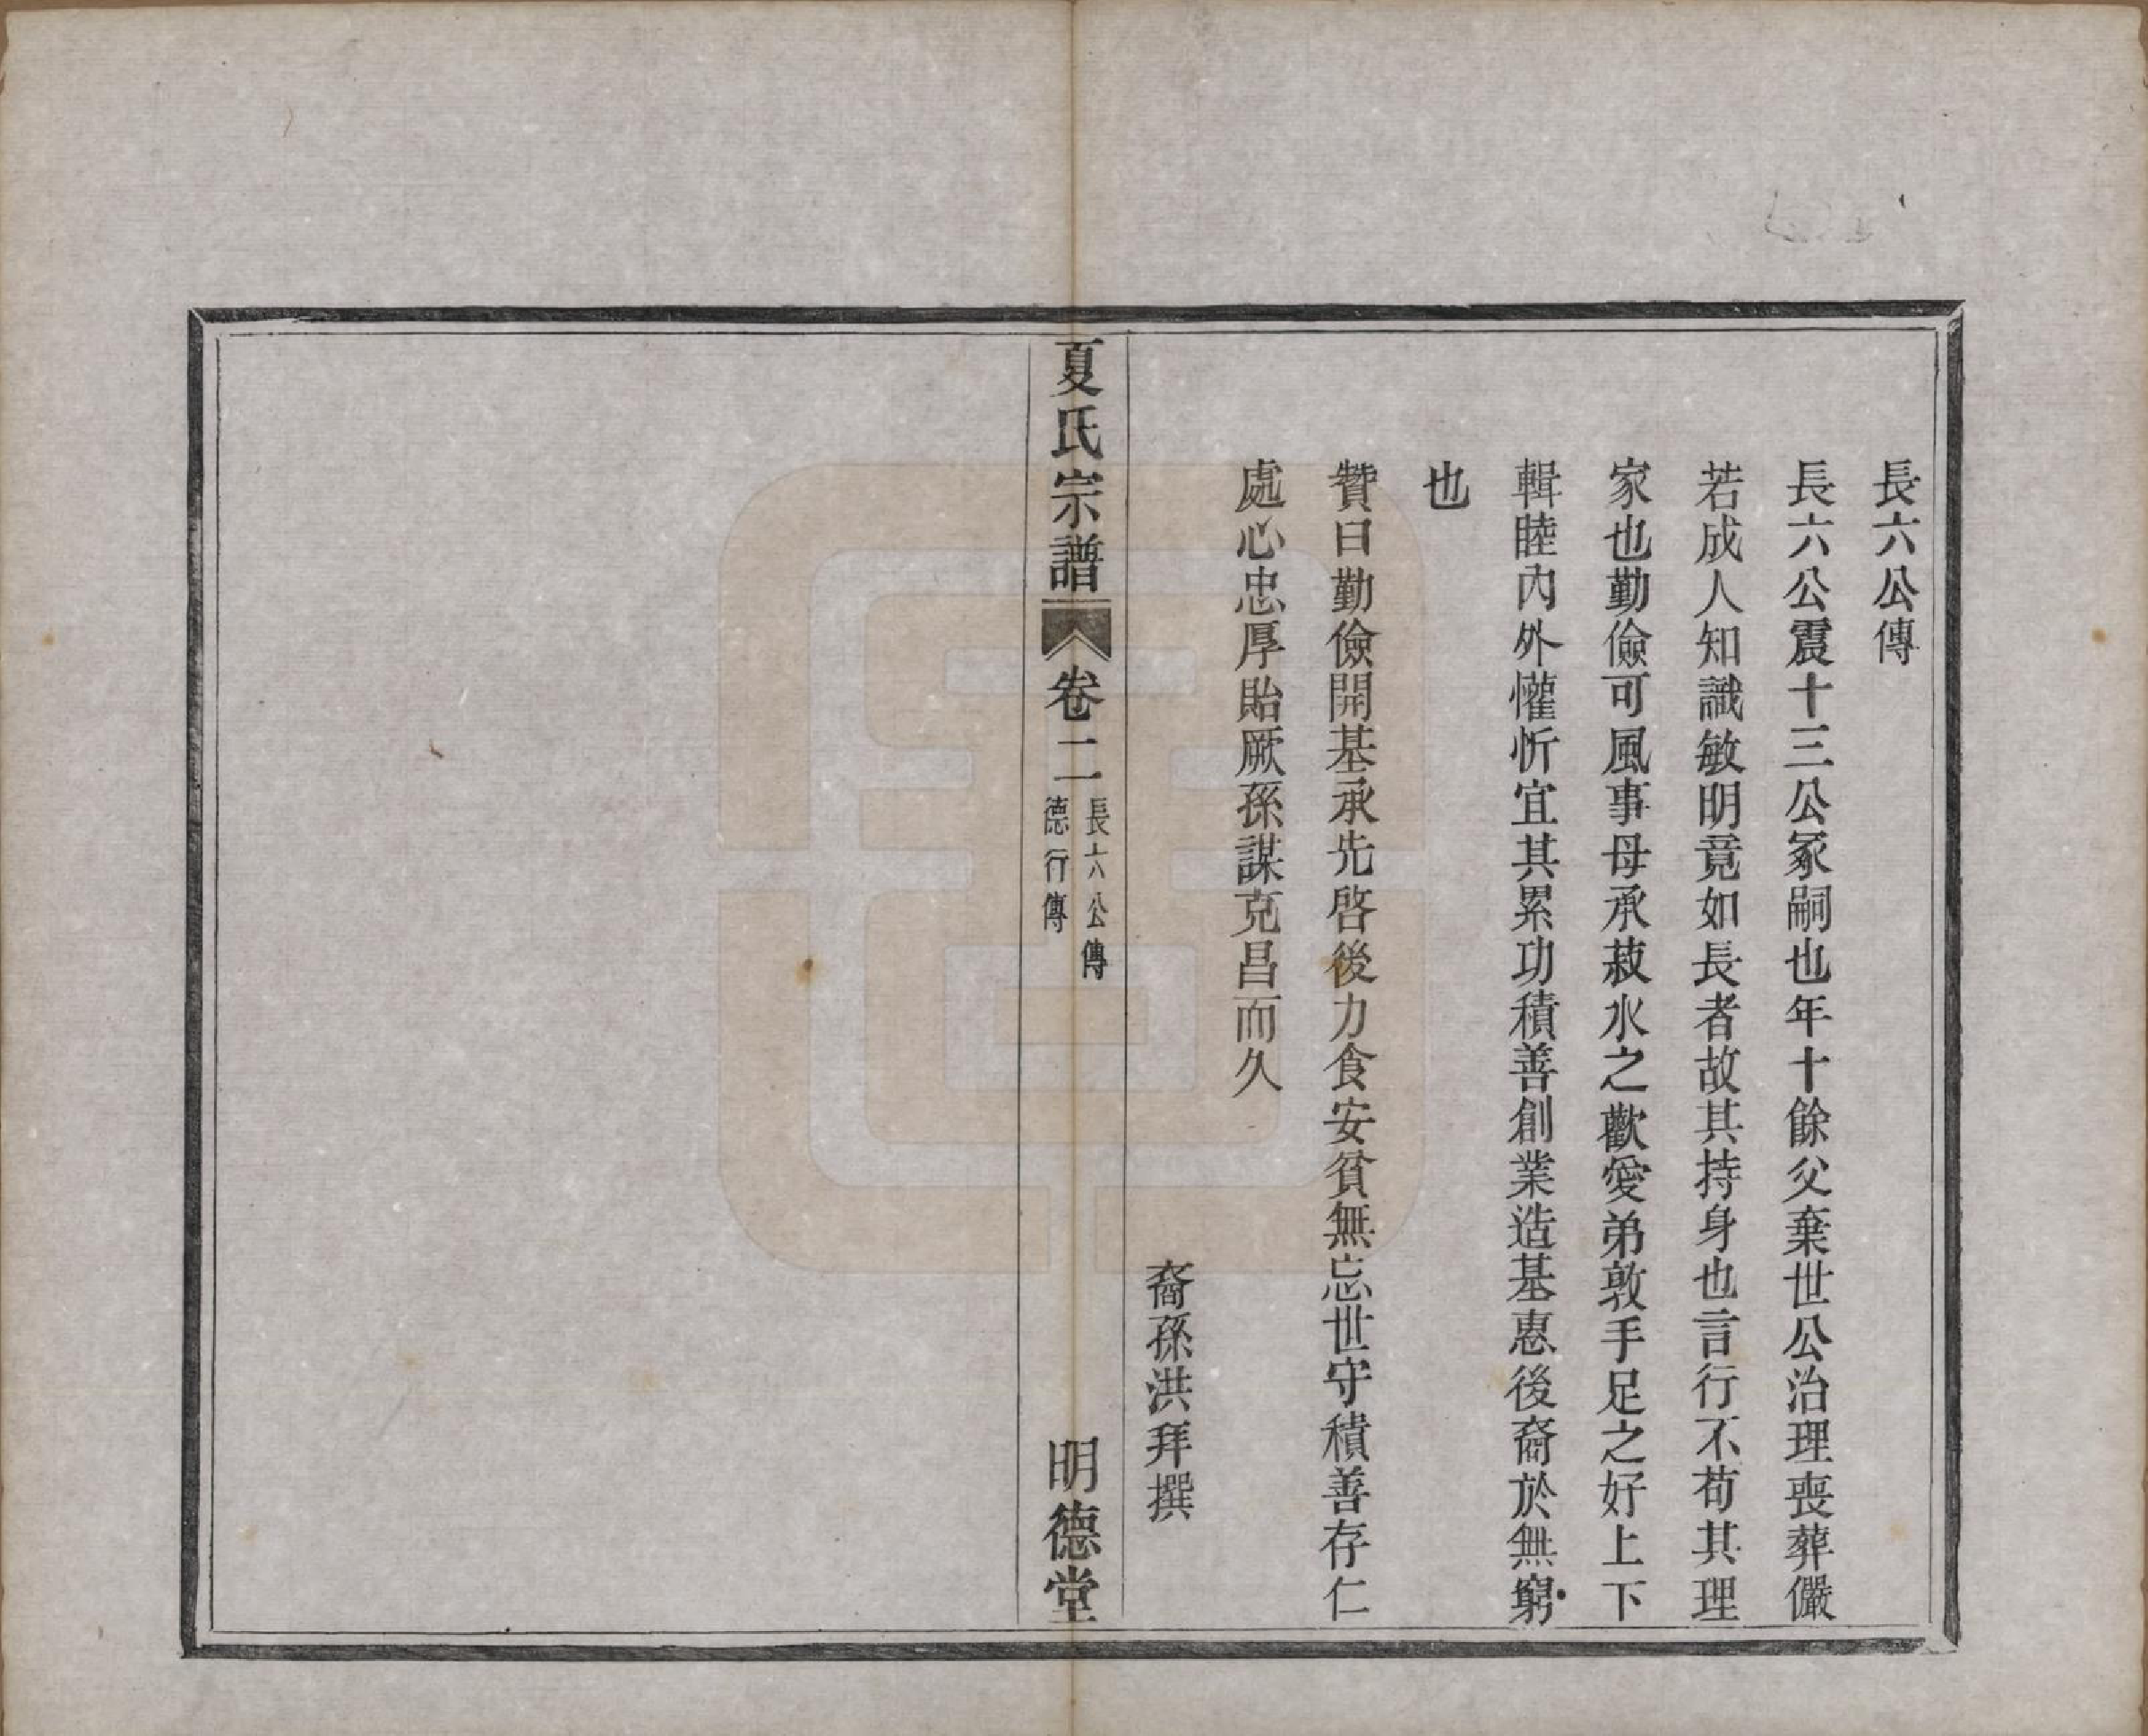 長六公傳
長六公震十三公冢嗣也年十餘父棄世公治理喪葬儼
若成人知識敏明竟如長者故其持身也言行不苟其理
家也勤儉可風事母承菽水之歡愛弟敦手足之好上下
輯睦內外懽忻宜其累功積善創業造基惠後裔於無窮
也
贊曰勤儉開基承先啓後力食安貧無忘世守積善存仁
處心忠厚貽厥孫謀克昌而久
裔孫洪拜撰
夏氏宗譜 卷二 長六公傳
德行傳
明德堂